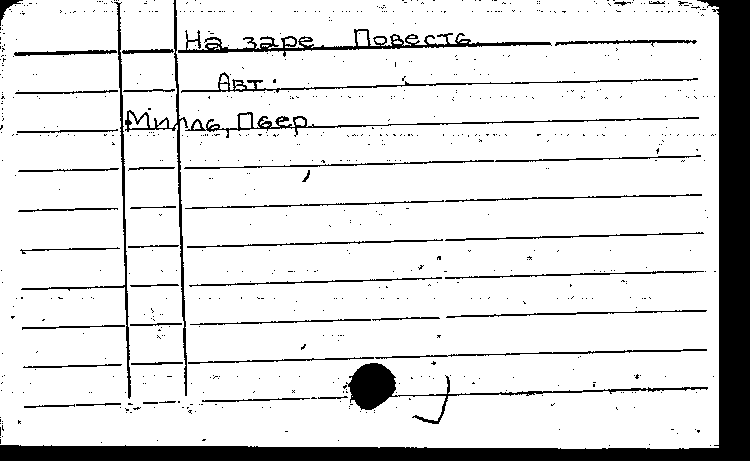 На заре. Повесть
Авт:
Милль, Пьер.